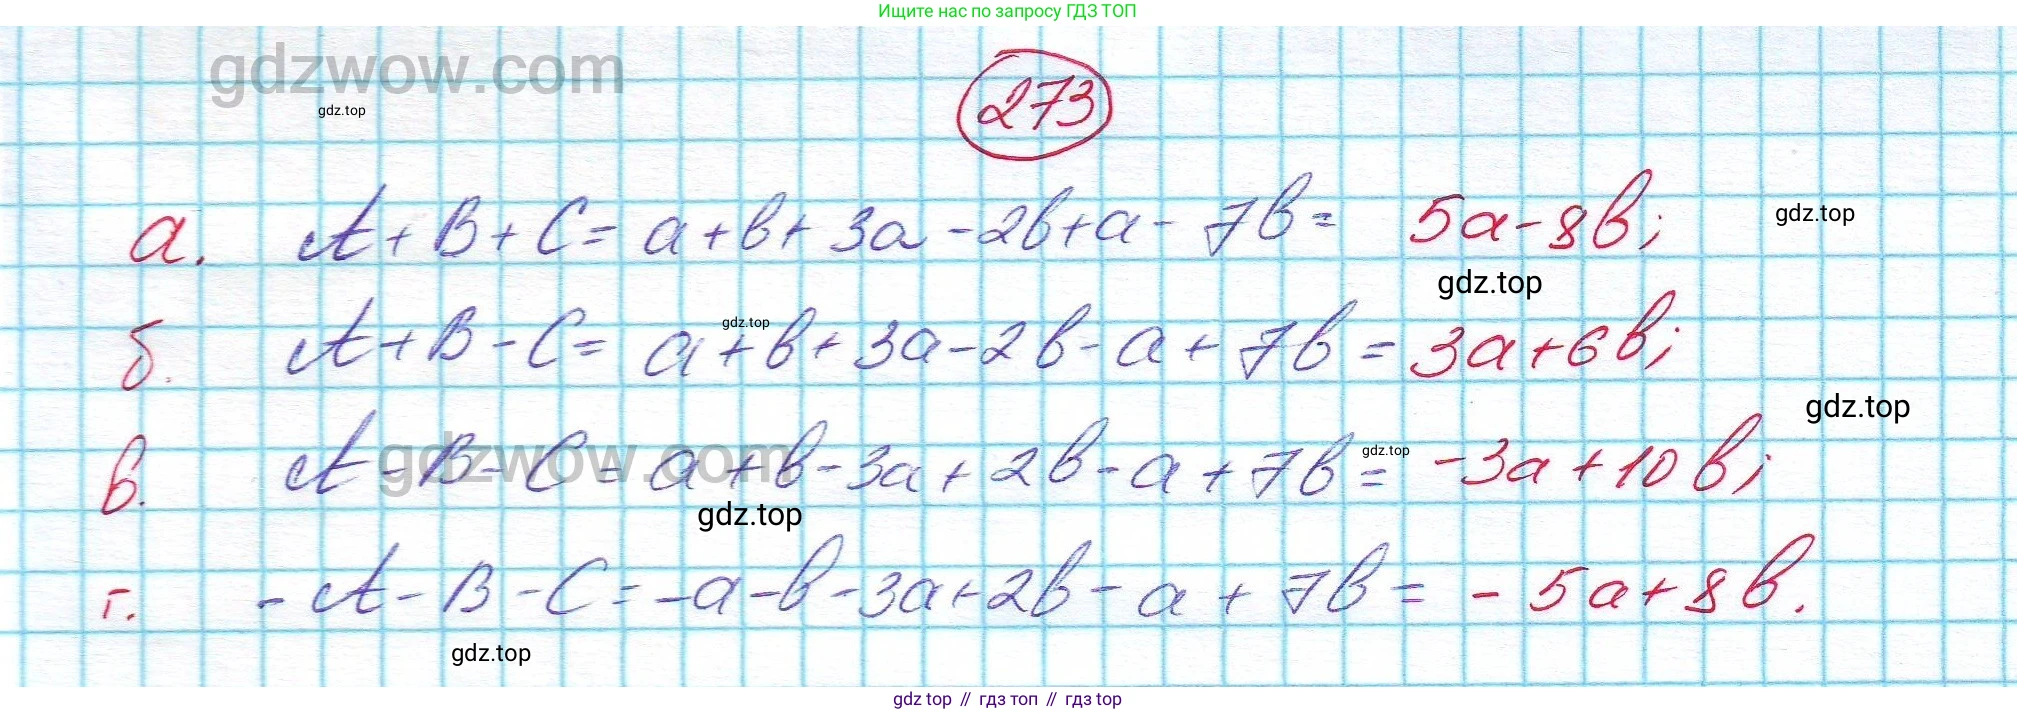 Ищите нас по запросу ГДЗ ТОП
gdzwow.com
gdz.top
273
а. A + B + C = a + b + 3a - 2b + a - 7b = 5a - 8b;
gdz.top
gdz.top
б. A + B - C = a + b + 3a - 2b - a + 7b = 3a + 6b;
gdz.top
gdz.top
в. A - B - C = a + b - 3a + 2b - a + 7b = -3a + 10b;
gdzwow.com
gdz.top
gdz.top
г. - A - B - C = -a - b - 3a + 2b - a + 7b = - 5a + 8b.
gdz.top
gdz top // гдз топ // гдз top